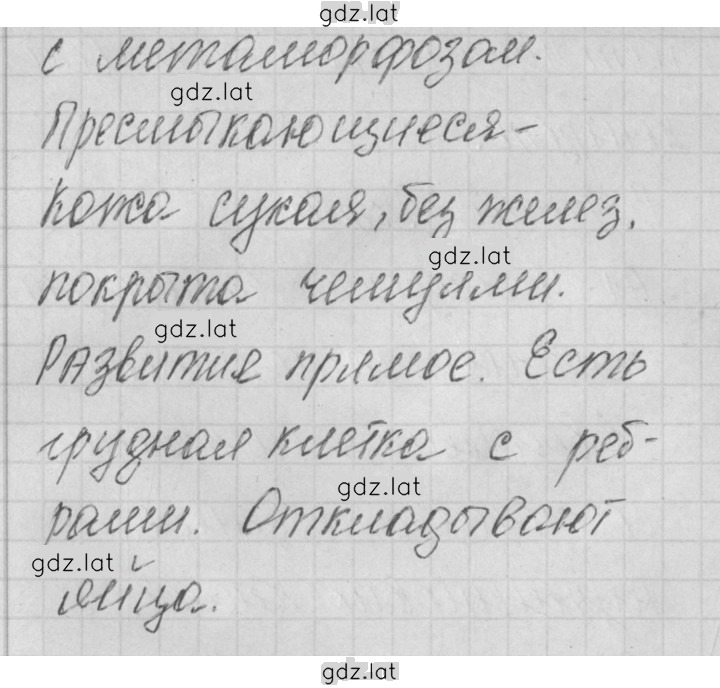 gdz.lat
с метаморфозом.
gdz.lat
Пресмыкающиеся-
Кожа сухая, без желез.
gdz.lat
покрыта чешуями.
gdz.lat
Развитие прямое. Есть
грудная клетка с реб-
gdz.lat
рами. Откладывают
gdz.lat
яйца.
gdz.lat